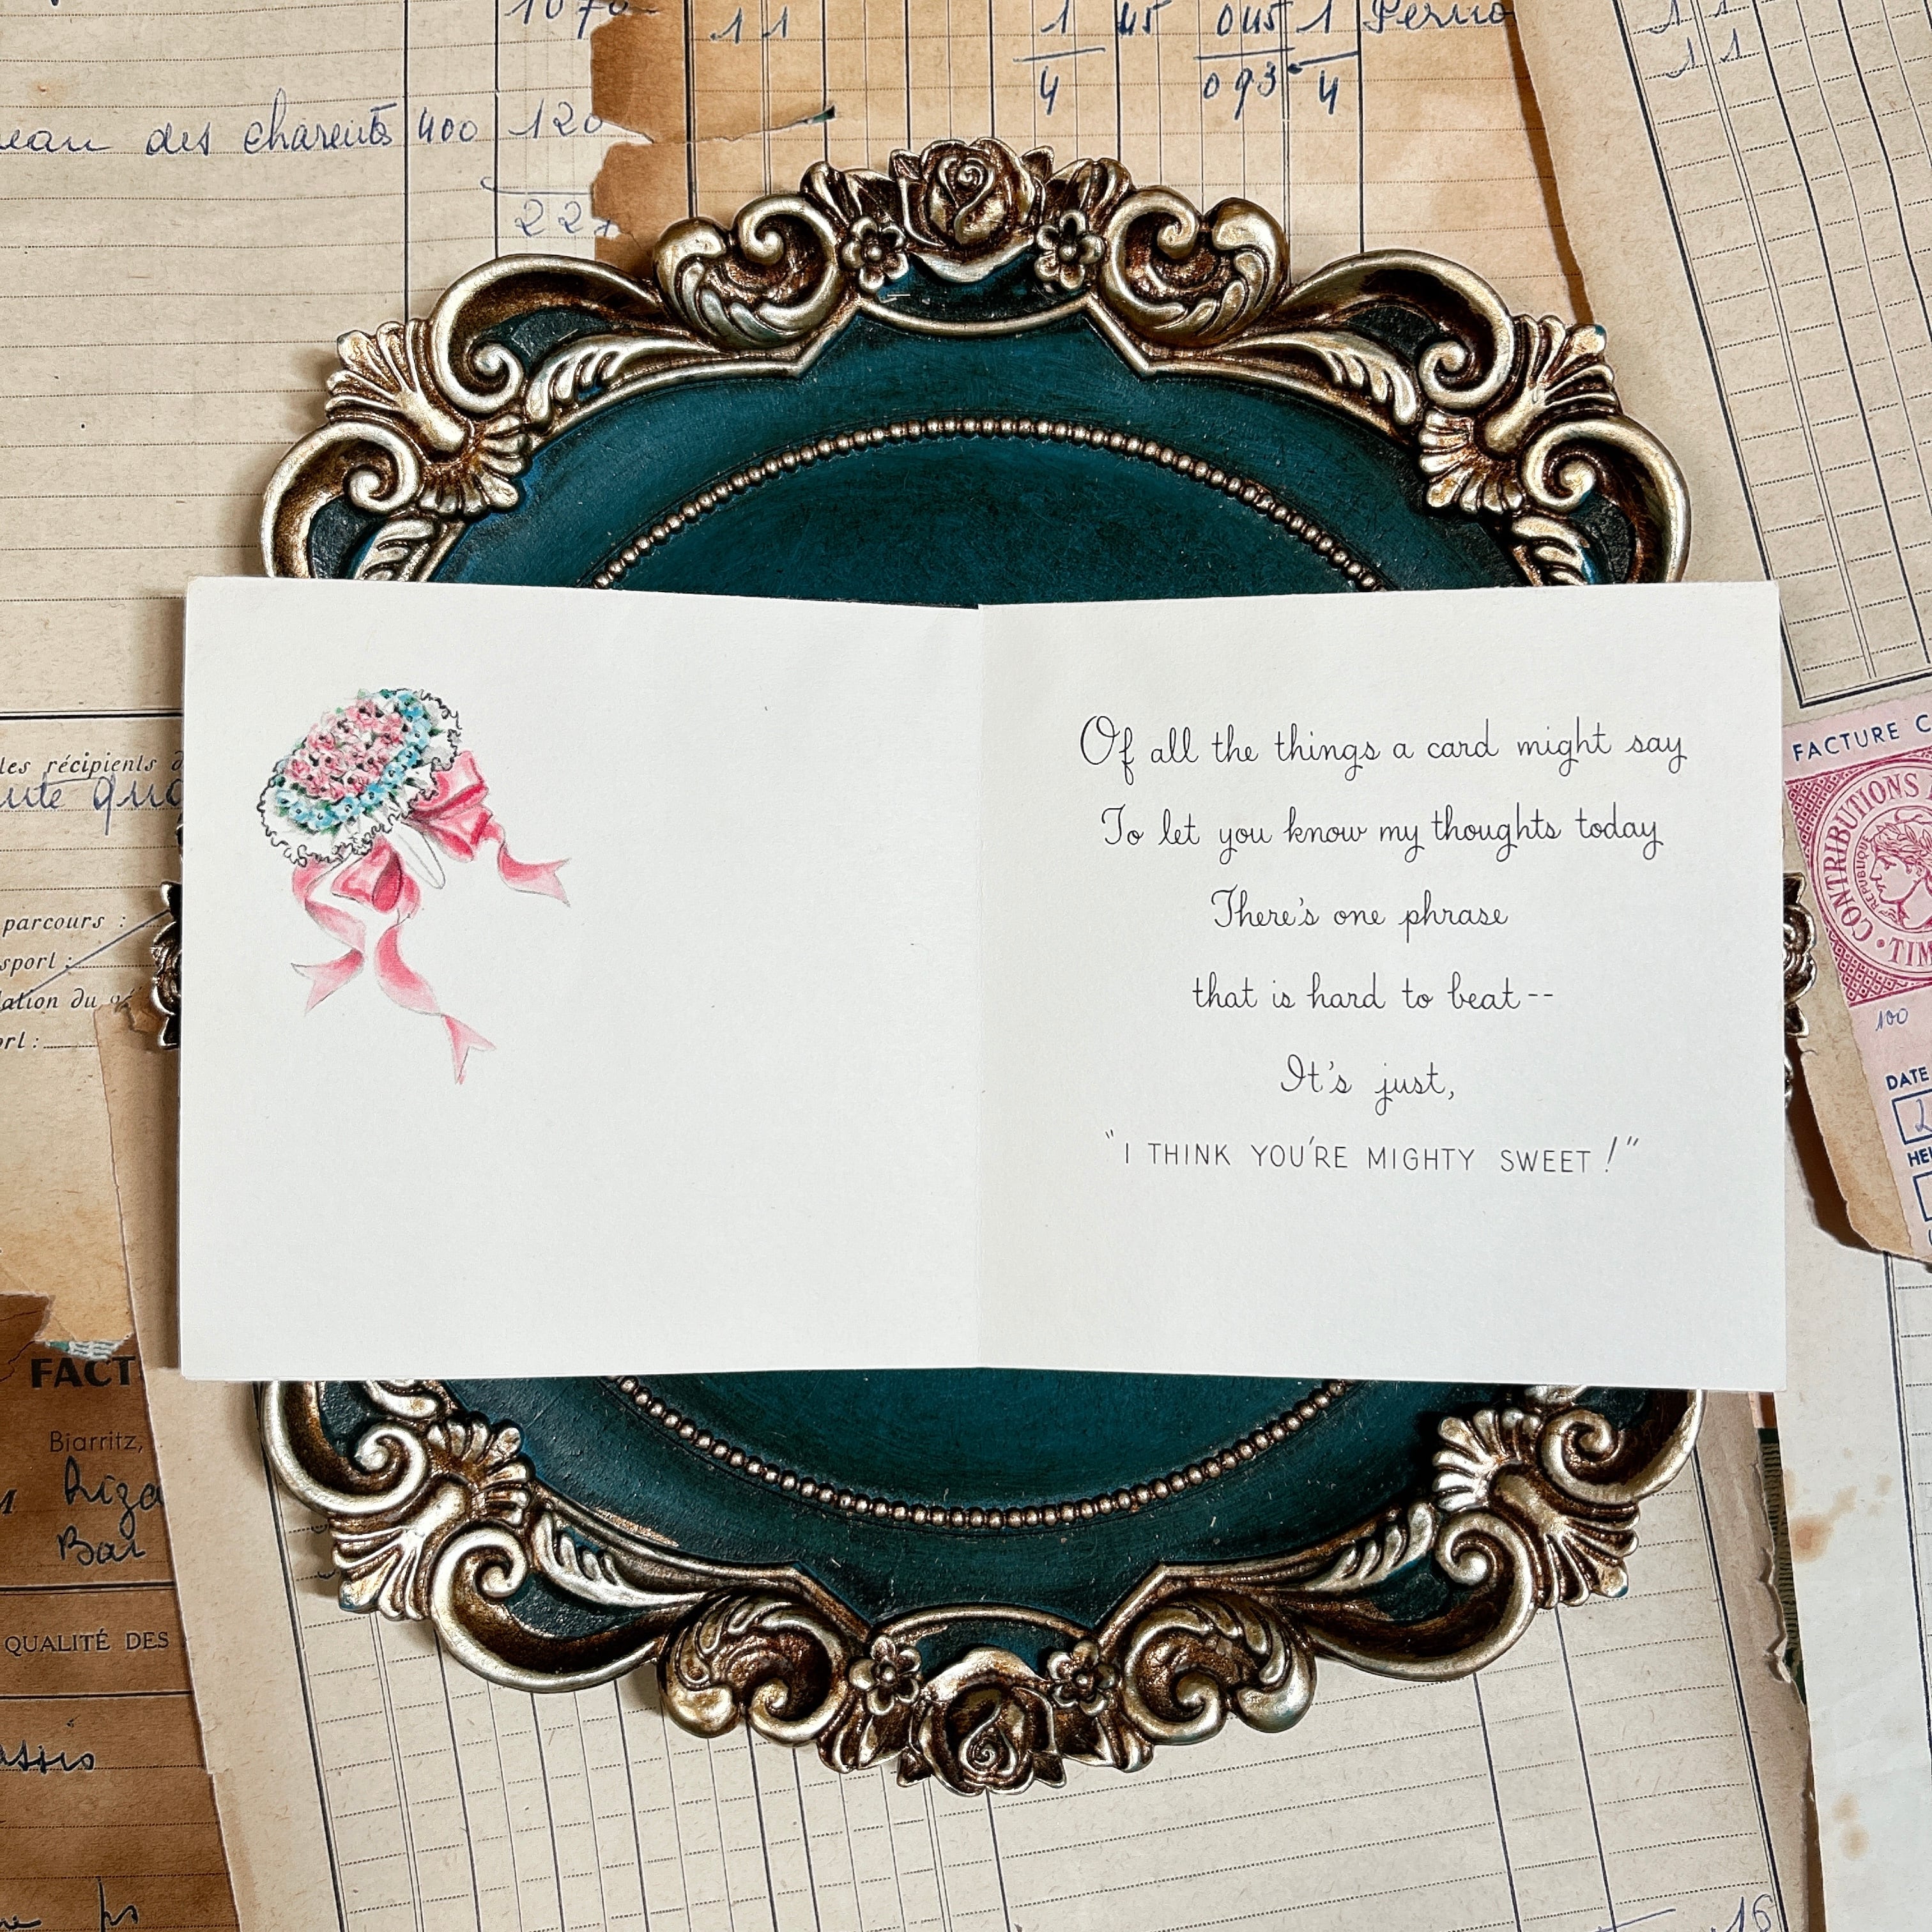 1070
11
1 45 045 1
4 093 4
11
11
des charents 400 120
22
les récipients d
parcours :
sport :
lation du
ort :
FACT
Biarritz,
QUALITÉ DES
Of all the things a card might say
To let you know my thoughts today
There's one phrase
that is hard to beat--
It's just,
"I THINK YOU'RE MIGHTY SWEET!"
FACTURE C
CONTRIBUTIONS
RÉPUBLIQUE
TIM
100
DATE
HE
16